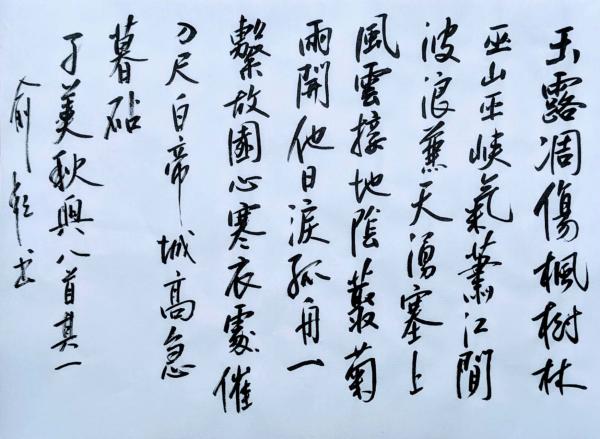 玉露凋傷楓樹林
巫山巫峽氣蕭江間
波浪兼天湧塞上
風雲接地陰叢菊
兩開他日淚孤舟一
繫故園心寒衣處催
刀尺白帝城高急
暮砧
子美秋興八首其一
俞